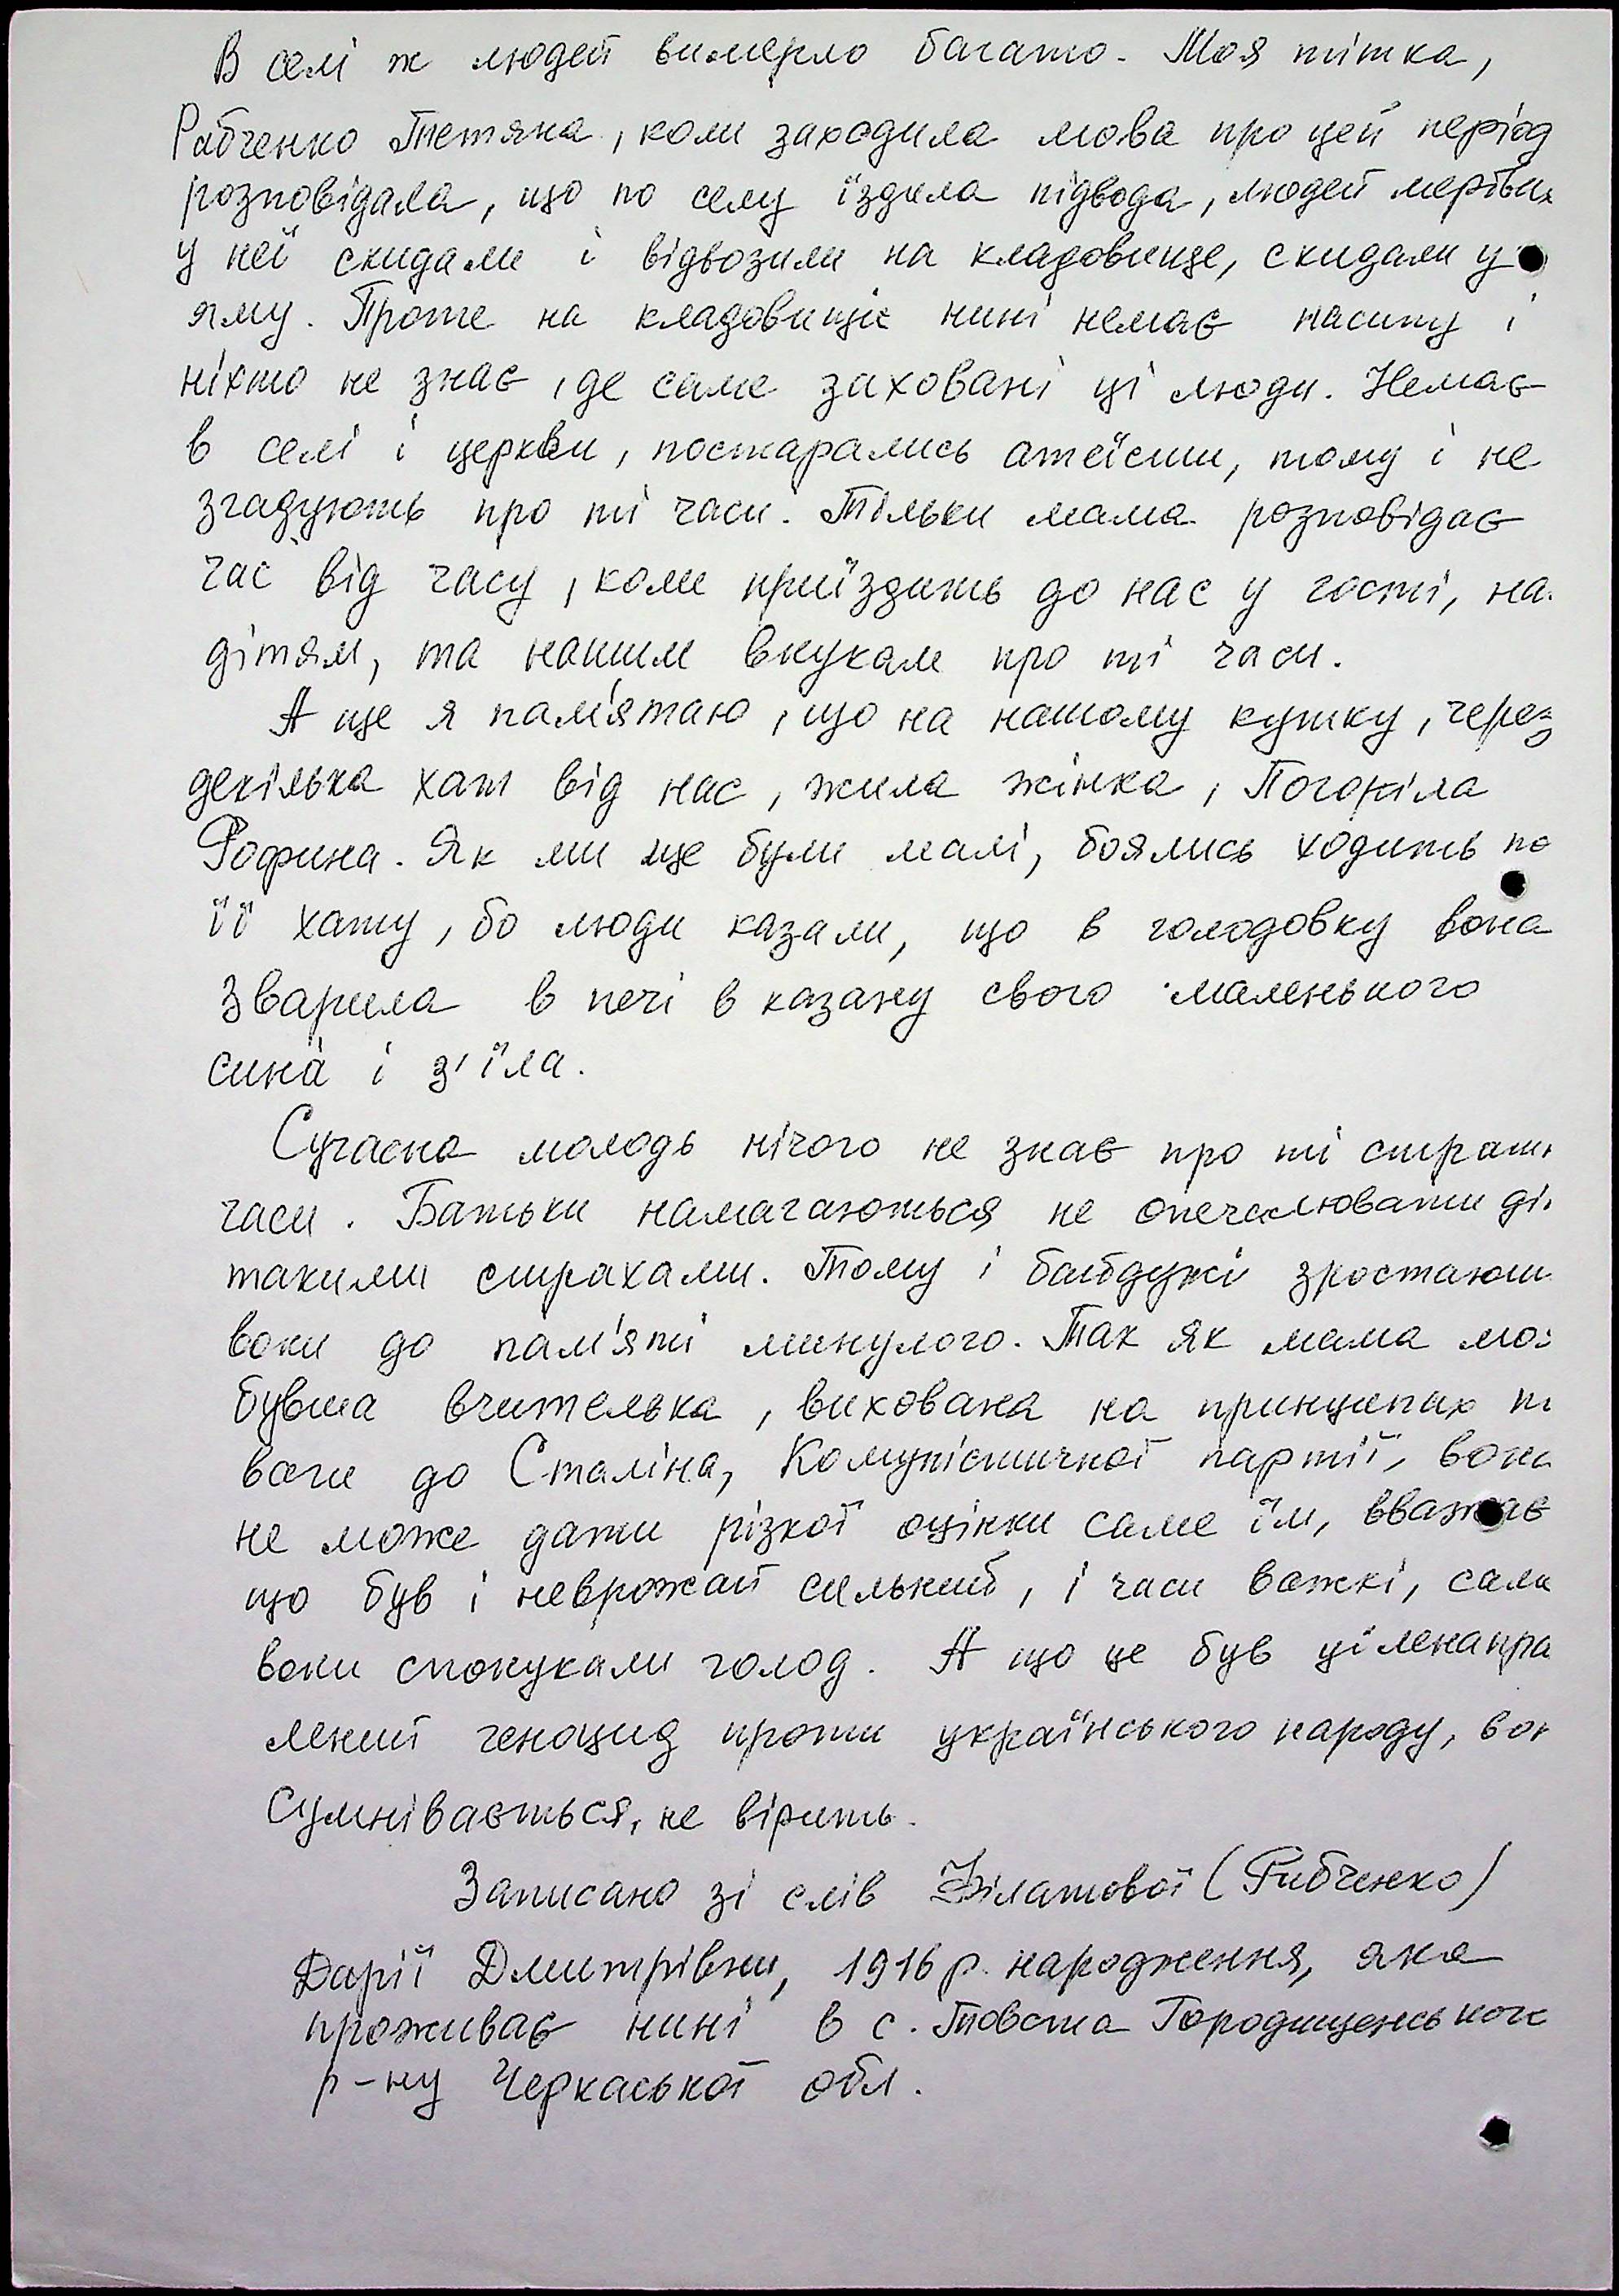 В селі ж людей вимерло багато. Моя тітка,
Рибченко Тетяна, коли заходила мова про цей період
розповідала, що по селу їздила підвода, людей мертвих
у неї скидали і відвозили на кладовище, скидали у
яму. Проте на кладовищіє нині немає насипу і
ніхто не знає, де саме заховані ці люди. Немає
в селі і церкви, постарались атеїсти, тому і не
згадують про ті часи. Тільки мама розповідає
час від часу, коли приїздить до нас у гості, на
дітям, та нашим внукам про ті часи.
А ще я пам'ятаю, що на нашому кутку, через
декілька хат від нас, жила жінка, Погоріла
Рофина. Як ми ще були малі, боялись ходить по
її хату, бо люди казали, що в голодовку вона
зварила в печі в казану свого маленького
сина і з'їла.
Сучасна молодь нічого не знає про ті страш
часи. Батьки намагаються не опечалювати ді
такими страхами. Тому і байдужі зростают
вони до пам'яті минулого. Так як мама мо
бувша вчителька, вихована на принципах п
ваги до Сталіна, Комуністичної партії, вона
не може дати різкої оцінки саме їм, вважає
що був і неврожай сильний, і часи важкі, саме
вони спонукали голод. А що це був ціленапра
лений геноцид проти українського народу, вон
сумнівається, не вірить.
Записано зі слів Філатової (Рибченко)
Дарії Дмитрівни, 1916 р. народження, яка
проживає нині в с. Товста Городищенського
р-ну Черкаської обл.